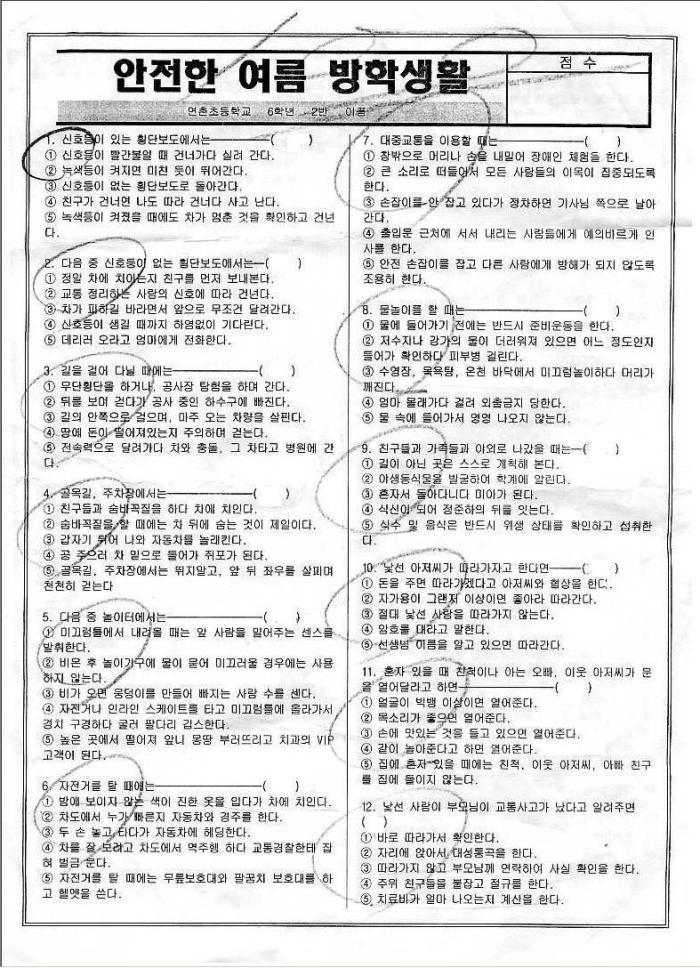 안전한 여름 방학생활
점 수
연촌초등학교 6학년 2반 이름
1. 신호등이 있는 횡단보도에서는( )
① 신호등이 빨간불일 때 건너가다 실려 간다.
② 녹색등이 켜지면 미친 듯이 뛰어간다.
③ 신호등이 없는 횡단보도로 돌아간다.
④ 친구가 건너면 나도 따라 건너다 사고 난다.
⑤ 녹색등이 켜졌을 때에도 차가 멈춘 것을 확인하고 건넌
다.
2. 다음 중 신호등이 없는 횡단보도에서는( )
① 정말 차에 치이는지 친구를 먼저 보내본다.
② 교통 정리하는 사람의 신호에 따라 건넌다.
③ 차가 피하길 바라면서 앞으로 무조건 달려간다.
④ 신호등이 생길 때까지 하염없이 기다린다.
⑤ 데리러 오라고 엄마에게 전화한다.
3. 길을 걸어 다닐 때에는( )
① 무단횡단을 하거나, 공사장 탐험을 하며 간다.
② 뒤를 보며 걷다가 공사 중인 하수구에 빠진다.
③ 길의 안쪽으로 걸으며, 마주 오는 차량을 살핀다.
④ 땅에 돈이 떨어져있는지 주의하며 걷는다.
⑤ 전속력으로 달려가다 차와 충돌, 그 차타고 병원에 간
다.
4. 골목길, 주차장에서는( )
① 친구들과 숨바꼭질을 하다 차에 치인다.
② 숨바꼭질을 할 때에는 차 뒤에 숨는 것이 제일이다.
③ 갑자기 튀어 나와 자동차를 놀래킨다.
④ 공 주으러 차 밑으로 들어가 쥐포가 된다.
⑤ 골목길, 주차장에서는 뛰지말고, 앞 뒤 좌우를 살피며
천천히 걷는다
5. 다음 중 놀이터에서는( )
① 미끄럼틀에서 내려올 때는 앞 사람을 밀어주는 센스를
발휘한다.
② 비온 후 놀이기구에 물이 묻어 미끄러울 경우에는 사용
하지 않는다.
③ 비가 오면 웅덩이를 만들어 빠지는 사람 수를 센다.
④ 자전거나 인라인 스케이트를 타고 미끄럼틀에 올라가서
경치 구경하다 굴러 팔다리 깁스한다.
⑤ 높은 곳에서 떨어져 앞니 몽땅 부러뜨리고 치과의 VIP
고객이 된다.
6. 자전거를 탈 때에는( )
① 밤에 보이지 않는 색이 진한 옷을 입다가 차에 치인다.
② 차도에서 누가 빠른지 자동차와 경주를 한다.
③ 두 손 놓고 타다가 자동차에 헤딩한다.
④ 차를 잘 보려고 차도에서 역주행 하다 교통경찰한테 잡
혀 벌금 문다.
⑤ 자전거를 탈 때에는 무릎보호대와 팔꿈치 보호대를 하
고 헬멧을 쓴다.
7. 대중교통을 이용할 때는( )
① 창밖으로 머리나 손을 내밀어 장애인 체험을 한다.
② 큰 소리로 떠들어서 모든 사람들의 이목이 집중되도록
한다.
③ 손잡이를 안 잡고 있다가 정차하면 기사님 쪽으로 날아
간다.
④ 출입문 근처에 서서 내리는 사람들에게 예의바르게 인
사를 한다.
⑤ 안전 손잡이를 잡고 다른 사람에게 방해가 되지 않도록
조용히 한다.
8. 물놀이를 할 때는( )
① 물에 들어가기 전에는 반드시 준비운동을 한다.
② 저수지나 강가의 물이 더러워져 있으면 어느 정도인지
들어가 확인하다 피부병 걸린다.
③ 수영장, 목욕탕, 온천 바닥에서 미끄럼놀이하다 머리가
깨진다.
④ 엄마 몰래가다 걸려 외출금지 당한다.
⑤ 물 속에 들어가서 영영 나오지 않는다.
9. 친구들과 가족들과 야외로 나갔을 때는( )
① 길이 아닌 곳은 스스로 개척해 본다.
② 야생동식물을 발굴하여 학계에 알린다.
③ 혼자서 돌아다니다 미아가 된다.
④ 식신이 되어 정준하의 뒤를 잇는다.
⑤ 식수 및 음식은 반드시 위생 상태를 확인하고 섭취한
다.
10. 낯선 아저씨가 따라가자고 한다면( )
① 돈을 주면 따라가겠다고 아저씨와 협상을 한다.
② 자가용이 그랜저 이상이면 좋아라 따라간다.
③ 절대 낯선 사람을 따라가지 않는다.
④ 암호를 대라고 말한다.
⑤ 선생님 이름을 알고 있으면 따라간다.
11. 혼자 있을 때 친척이나 아는 오빠, 이웃 아저씨가 문
을 열어달라고 하면( )
① 얼굴이 빅뱅 이상이면 열어준다.
② 목소리가 좋으면 열어준다.
③ 손에 맛있는 것을 들고 있으면 열어준다.
④ 같이 놀아준다고 하면 열어준다.
⑤ 집에 혼자 있을 때에는 친척, 이웃 아저씨, 아빠 친구
를 집에 들이지 않는다.
12. 낯선 사람이 부모님이 교통사고가 났다고 알려주면
( )
① 바로 따라가서 확인한다.
② 자리에 앉아서 대성통곡을 한다.
③ 따라가지 않고 부모님께 연락하여 사실 확인을 한다.
④ 주위 친구들을 붙잡고 절규를 한다.
⑤ 치료비가 얼마 나오는지 계산을 한다.